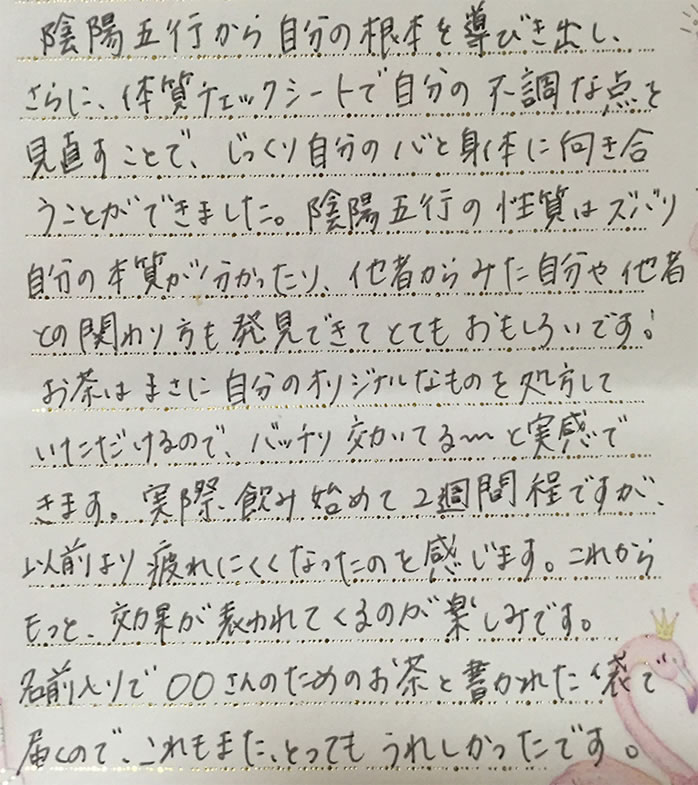 陰陽五行から自分の根本を導びき出し、
さらに、体質チェックシートで自分の不調な点を
見直すことで、じっくり自分の心と身体に向き合
うことができました。陰陽五行の性質はズバリ
自分の本質が分かったり、他者からみた自分や他者
との関わり方も発見できてとてもおもしろいです!
お茶はまさに自分のオリジナルなものを処方して
いただけるので、バッチリ効いてる〜と実感で
きます。実際、飲み始めて2週間程ですが、
以前より疲れにくくなったのを感じます。これから
もっと、効果が表われてくるのが楽しみです。
名前入りで〇〇さんのためのお茶と書かれた袋で
届くので、これもまた、とってもうれしかったです。